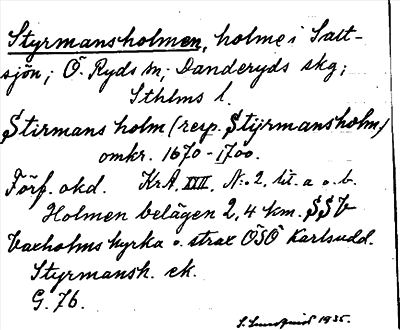 Styrmansholmen, holme i Salt-
sjön; Ö. Ryds sn; Danderyds skg;
Sthlms l.
Stirmans holm (resp. Stijrmansholm)
omkr. 1670-1700.
Förf. okd. KrA, XXII, N:o 2, lit. a o. b.
Holmen belägen 2,4 km. SSV
Vaxholms kyrka o. strax ÖSÖ Karlsudd.
Styrmansh. ek.
G. 76.
S. Lundquist 1935.